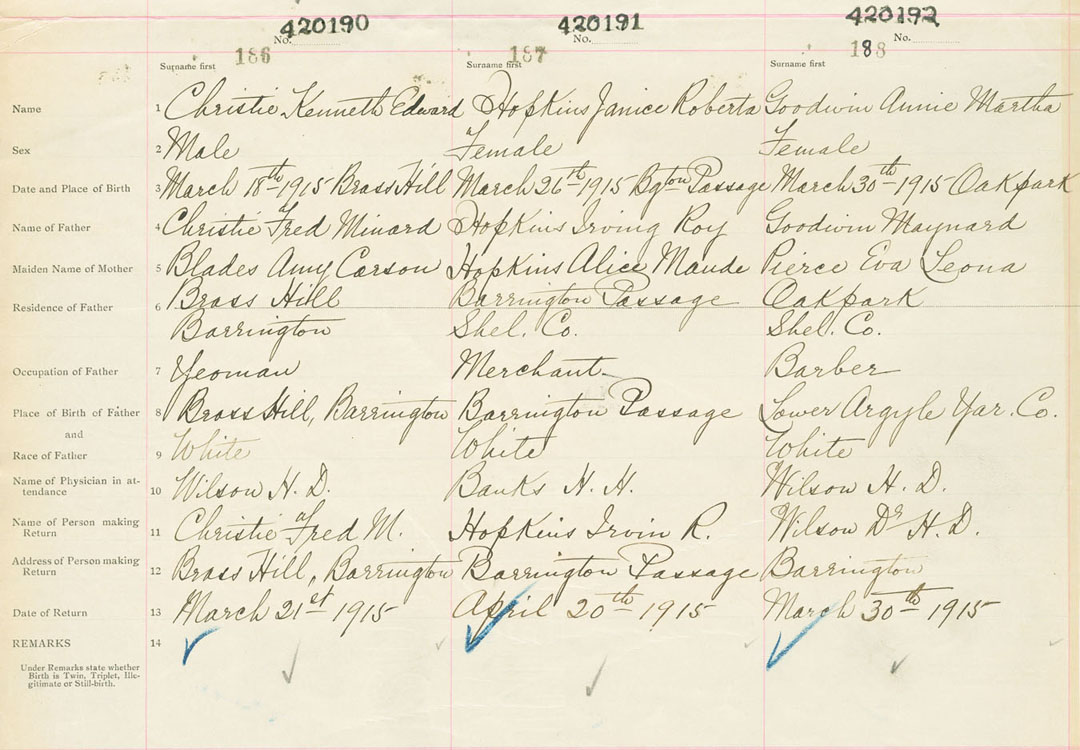 420190 420191 420192
No. No. No.
186 187 188
Surname first Surname first Surname first
Name 1 Christie Kenneth Edward Hopkins Janice Roberta Goodwin Annie Martha
Sex 2 Male Female Female
Date and Place of Birth 3 March 18th 1915 Brass Hill March 26th 1915 Bgton Passage March 30th 1915 Oakpark
Name of Father 4 Christie Fred Minard Hopkins Irving Roy Goodwin Maynard
Maiden Name of Mother 5 Blades Amy Carson Hopkins Alice Maude Pierce Eva Leona
Residence of Father 6 Brass Hill Barrington Passage Oakpark
Barrington Shel. Co. Shel. Co.
Occupation of Father 7 Yeoman Merchant Barber
Place of Birth of Father 8 Brass Hill, Barrington Barrington Passage Lower Argyle Yar. Co.
and
Race of Father 9 White White White
Name of Physician in at-
tendance 10 Wilson H. D. Banks H. H. Wilson H. D.
Name of Person making
Return 11 Christie Fred M. Hopkins Irvin R. Wilson Dr H. D.
Address of Person making
Return 12 Brass Hill, Barrington Barrington Passage Barrington
Date of Return 13 March 21st 1915 April 20th 1915 March 30th 1915
REMARKS 14
Under Remarks state whether
Birth is Twin, Triplet, Ille-
gitimate or Still-birth.